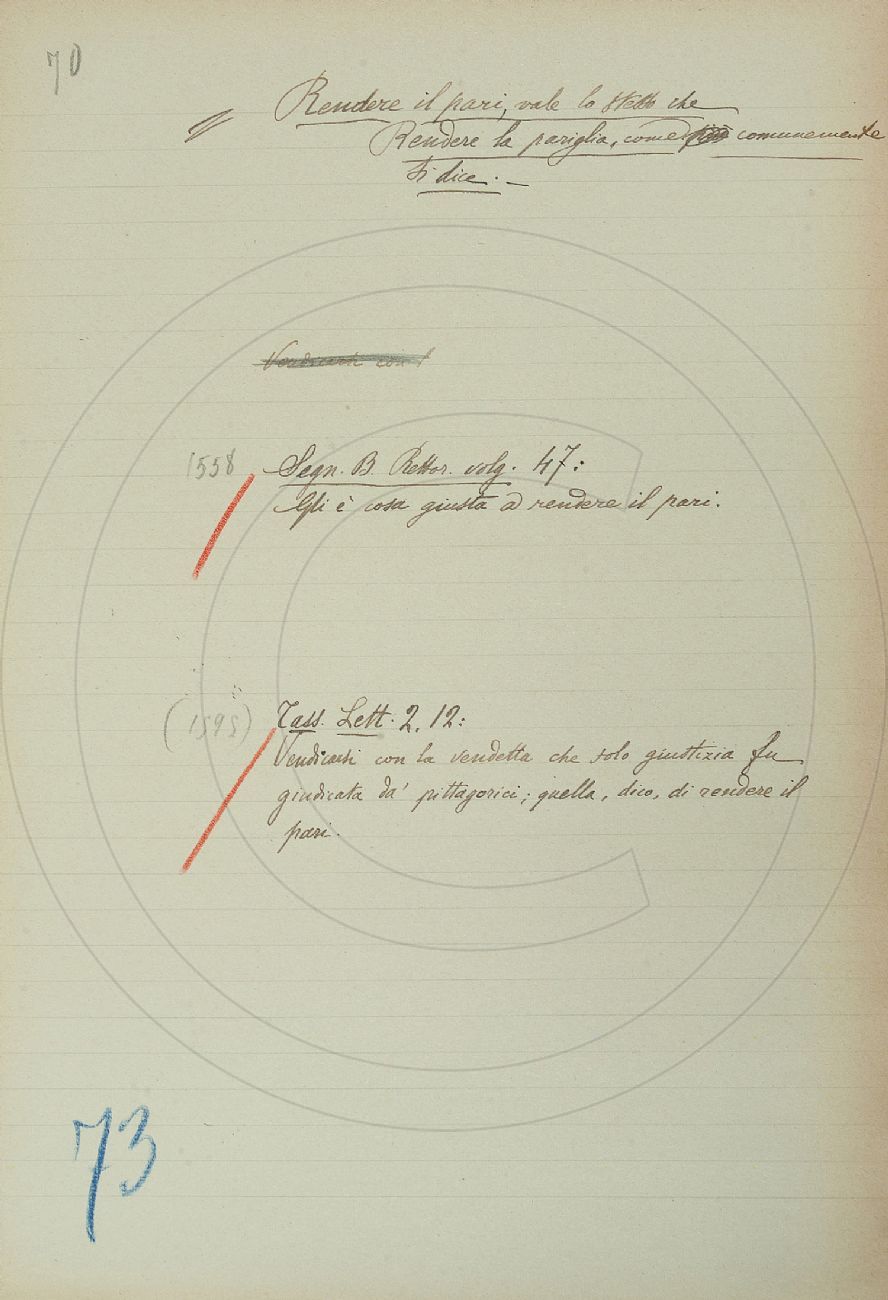 70
Rendere il pari, vale lo stesso che
Rendere la pariglia, come comunemente
si dice. –
Vendicarsi con l
1558 Segn. B. Rettor. volg. 47:
Gli è cosa giusta a rendere il pari.
(1595) Tass. Lett. 2. 12:
Vendicarsi con la vendetta che solo giustizia fu
giudicata da' pittagorici; quella, dico, di rendere il
pari.
73